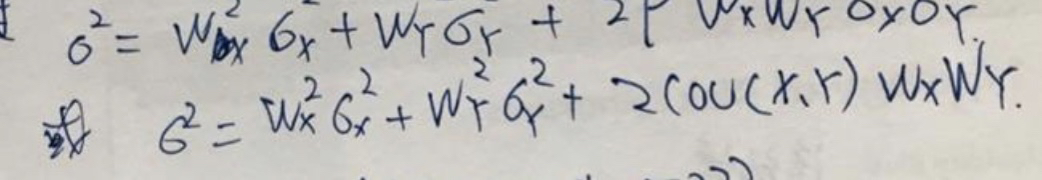 σ² = Wx² σx² + WY σY + 2ρ WxWY σxσY.
或 σ² = Wx² σx² + WY² σY² + 2COV(X,Y) WxWY.